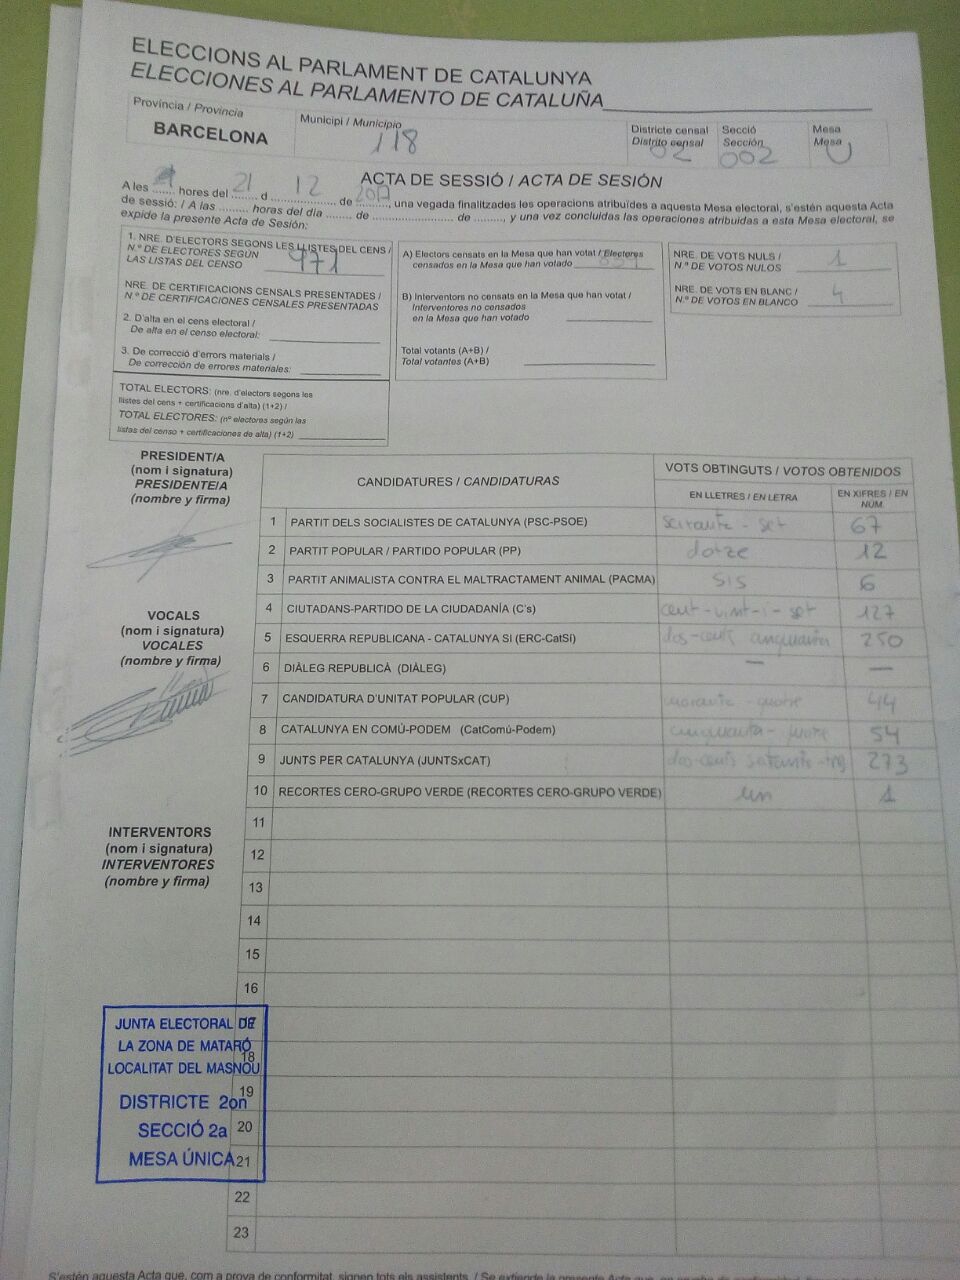 ELECCIONS AL PARLAMENT DE CATALUNYA
ELECCIONES AL PARLAMENTO DE CATALUÑA
Província / Provincia
BARCELONA
Municipi / Municipio
118
Districte censal
Distrito censal
02
Secció
Sección
002
Mesa
Mesa
U
ACTA DE SESSIÓ / ACTA DE SESIÓN
A les ....... hores del 21 d 12 de 2017, una vegada finalitzades les operacions atribuïdes a aquesta Mesa electoral, s'estén aquesta Acta
de sessió: / A las ......... hores del día ........ de .................... de ........, y una vez concluidas las operaciones atribuidas a esta Mesa electoral, se
expide la presente Acta de Sesión:
1. NRE. D'ELECTORS SEGONS LES LLISTES DEL CENS /
N.º DE ELECTORES SEGÚN
LAS LISTAS DEL CENSO 971
NRE. DE CERTIFICACIONS CENSALS PRESENTADES /
N.º DE CERTIFICACIONES CENSALES PRESENTADAS
2. D'alta en el cens electoral /
De alta en el censo electoral:
3. De correcció d'errors materials /
De corrección de errores materiales:
TOTAL ELECTORS: (nre. d'electors segons les
llistes del cens + certificacions d'alta) (1+2) /
TOTAL ELECTORES: (nº electores según las
listas del censo + certificaciones de alta) (1+2)
A) Electors censats en la Mesa que han votat / Electores
censados en la Mesa que han votado
B) Interventors no censats en la Mesa que han votat /
Interventores no censados
en la Mesa que han votado
Total votants (A+B) /
Total votantes (A+B)
NRE. DE VOTS NULS /
N.º DE VOTOS NULOS 1
NRE. DE VOTS EN BLANC /
N.º DE VOTOS EN BLANCO 4
PRESIDENT/A
(nom i signatura)
PRESIDENTE/A
(nombre y firma)
VOCALS
(nom i signatura)
VOCALES
(nombre y firma)
INTERVENTORS
(nom i signatura)
INTERVENTORES
(nombre y firma)
CANDIDATURES / CANDIDATURAS
VOTS OBTINGUTS / VOTOS OBTENIDOS
EN LLETRES / EN LETRA
EN XIFRES / EN NÚM.
1 PARTIT DELS SOCIALISTES DE CATALUNYA (PSC-PSOE) seixanta-set 67
2 PARTIT POPULAR / PARTIDO POPULAR (PP) dotze 12
3 PARTIT ANIMALISTA CONTRA EL MALTRACTAMENT ANIMAL (PACMA) sis 6
4 CIUTADANS-PARTIDO DE LA CIUDADANÍA (C's) cent-vint-i-set 127
5 ESQUERRA REPUBLICANA - CATALUNYA SI (ERC-CatSí) dos-cents cinquanta 250
6 DIÀLEG REPUBLICÀ (DIÀLEG) — —
7 CANDIDATURA D'UNITAT POPULAR (CUP) 44
8 CATALUNYA EN COMÚ-PODEM (CatComú-Podem) cinquanta-quatre 54
9 JUNTS PER CATALUNYA (JUNTSxCAT) dos-cents setanta-tres 273
10 RECORTES CERO-GRUPO VERDE (RECORTES CERO-GRUPO VERDE) un 1
11
12
13
14
15
16
17
18
19
20
21
22
23
JUNTA ELECTORAL DE
LA ZONA DE MATARÓ
LOCALITAT DEL MASNOU
DISTRICTE 2on
SECCIÓ 2a
MESA ÚNICA
S'estén aquesta Acta que, com a prova de conformitat, signen tots els assistents. / Se extiende la presente Acta que, en prueba de